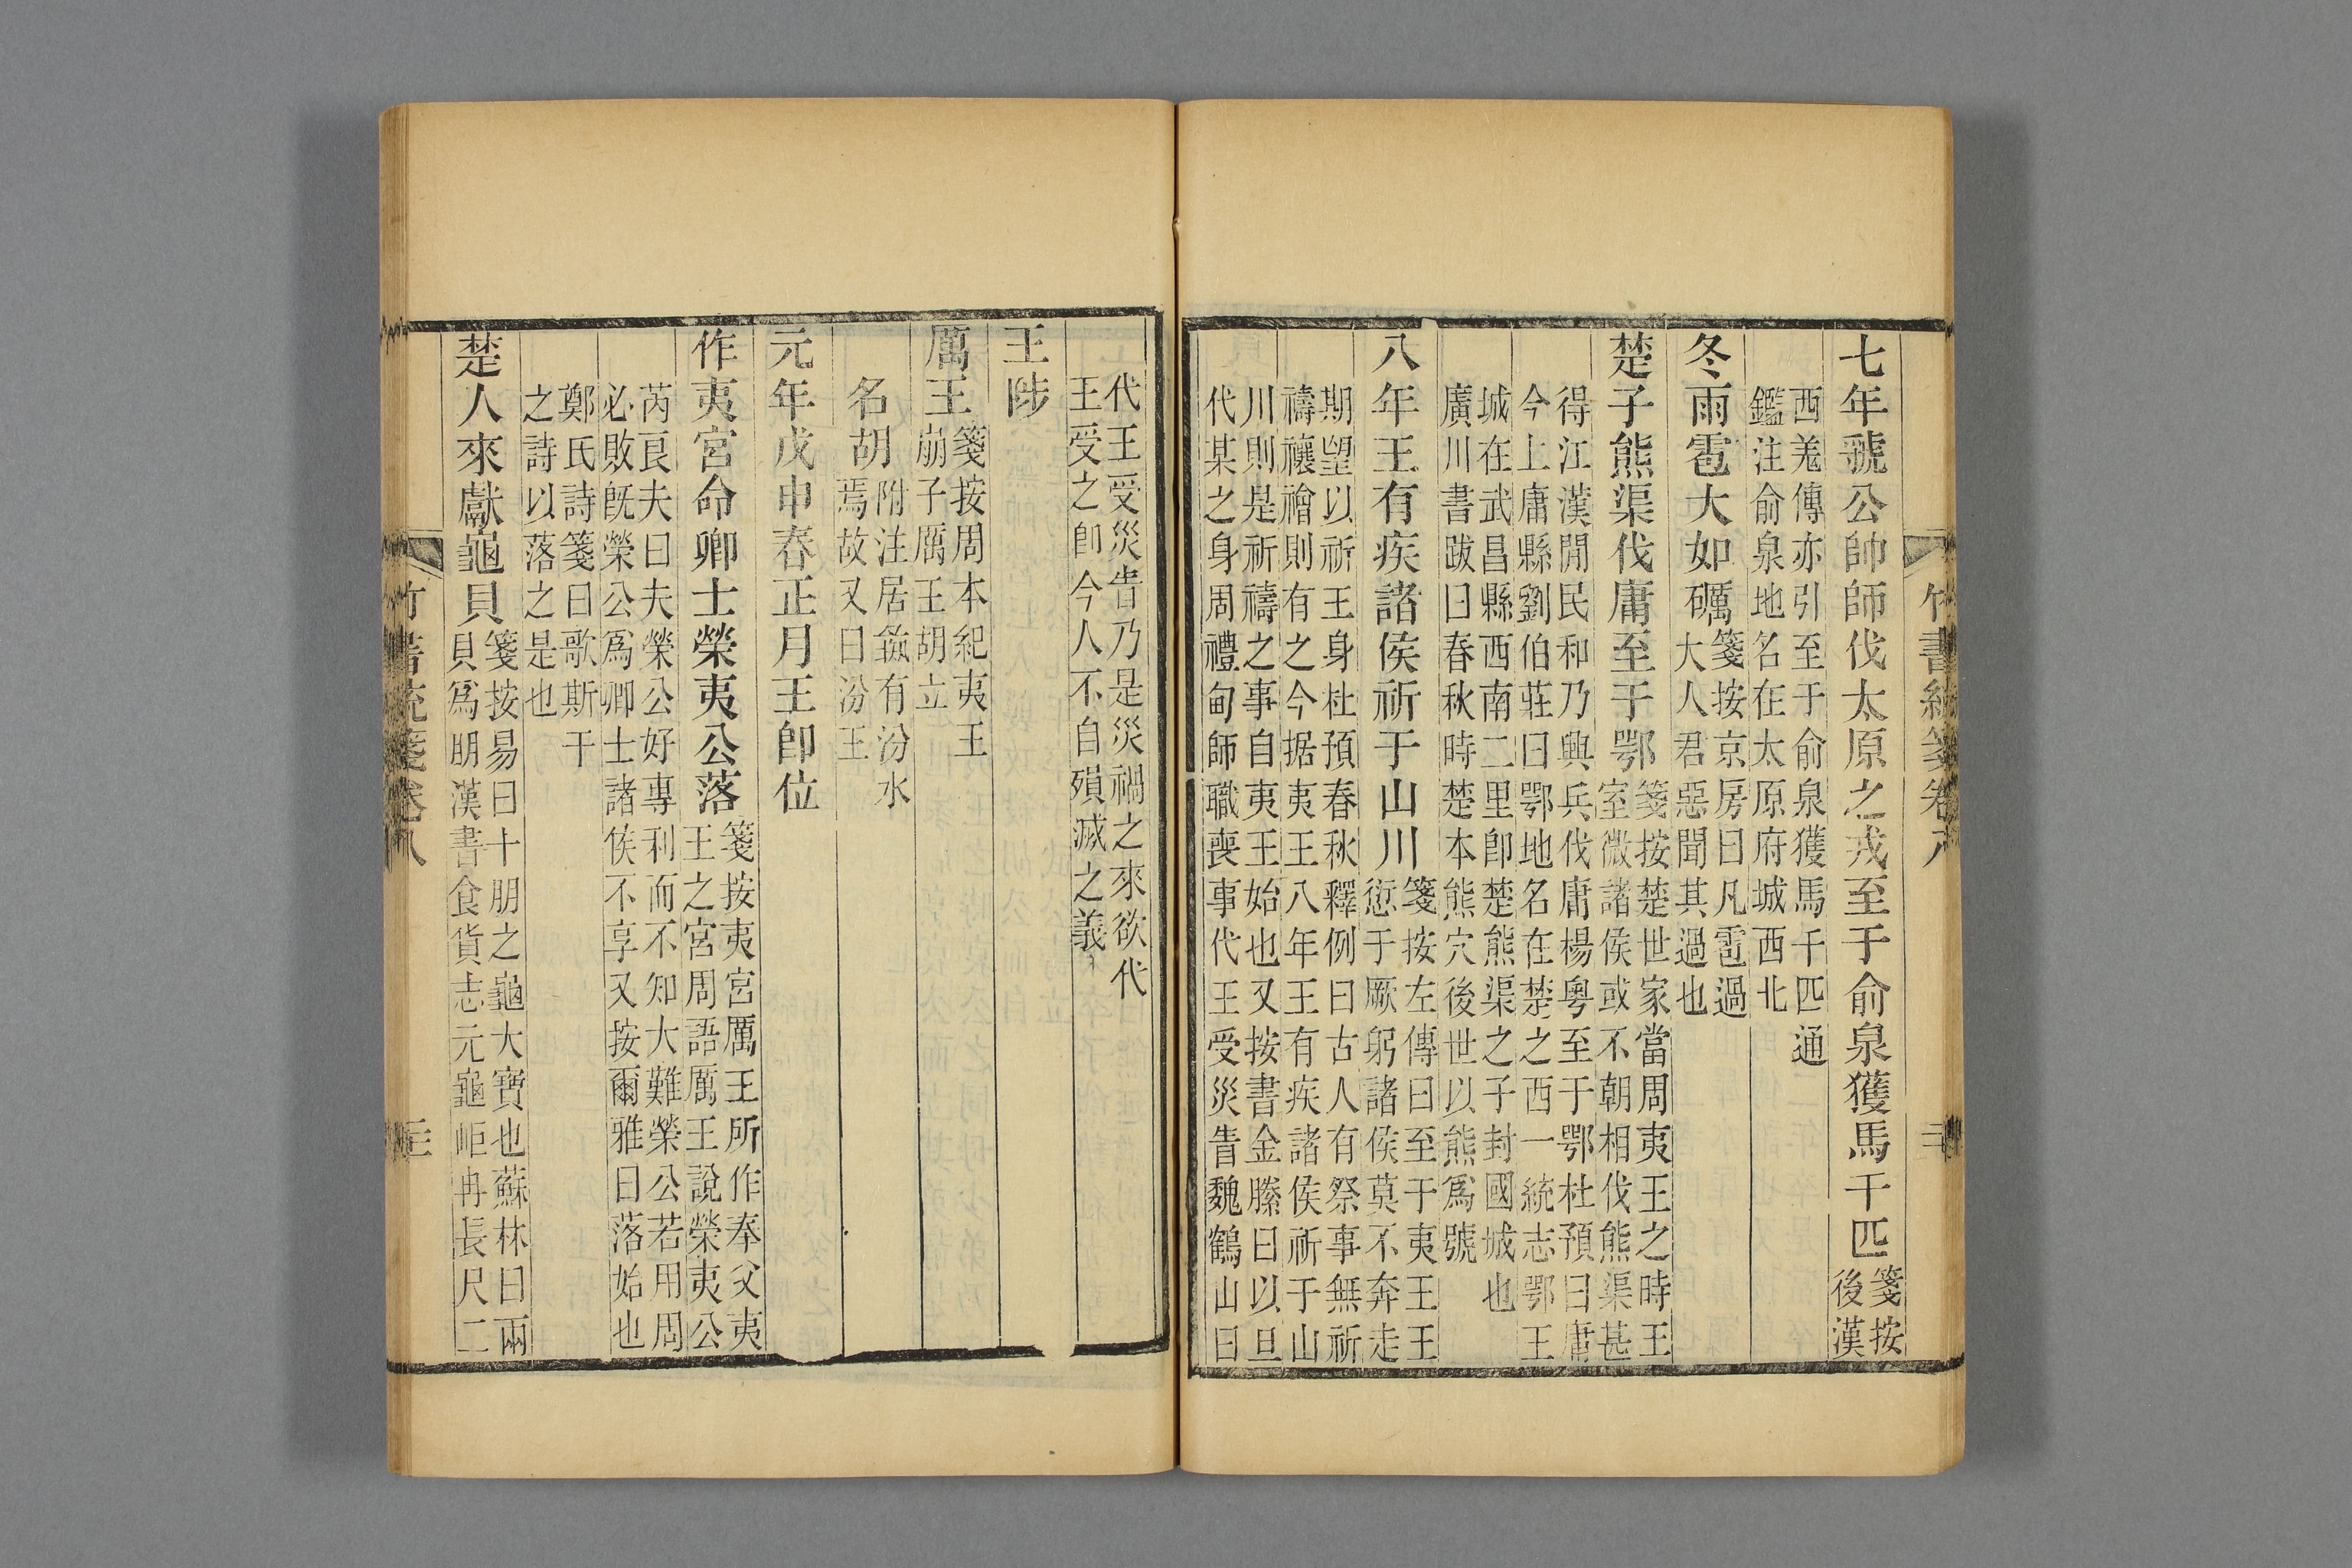 竹書統箋卷八
七年虢公帥師伐太原之戎至于俞泉獲馬千匹箋按後漢
西羌傳亦引至于俞泉獲馬千匹通
鑑注俞泉地名在太原府城西北
冬雨雹大如礪箋按京房曰凡雹過大人君惡聞其過也
楚子熊渠伐庸至于鄂箋按楚世家當周夷王之時王室微諸侯或不朝相伐熊渠甚
得江漢閒民和乃興兵伐庸楊粵至于鄂杜預曰庸
今上庸縣劉伯莊曰鄂地名在楚之西一統志鄂王
城在武昌縣西南二里卽楚熊渠之子封國城也
廣川書跋曰春秋時楚本熊穴後世以熊爲號
八年王有疾諸侯祈于山川箋按左傳曰至于夷王王愆于厥躬諸侯莫不奔走
期望以祈王身杜預春秋釋例曰古人有祭事無祈
禱禳禬則有之今据夷王八年王有疾諸侯祈于山
川則是祈禱之事自夷王始也又按書金縢曰以旦
代某之身周禮甸師職喪事代王受災眚魏鶴山曰
代王受災眚乃是災禍之來欲代
王受之卽今人不自殞滅之義
王陟
厲王箋按周本紀夷王崩子厲王胡立
名胡附注居彘有汾水焉故又曰汾王
元年戊申春正月王卽位
作夷宮命卿士榮夷公落箋按夷宮厲王所作奉父夷王之宮周語厲王說榮夷公
芮良夫曰夫榮公好專利而不知大難榮公若用周
必敗旣榮公爲卿士諸侯不享又按爾雅曰落始也
鄭氏詩箋曰歌斯干
之詩以落之是也
楚人來獻龜貝箋按易曰十朋之龜大寶也蘇林曰兩貝爲朋漢書食貨志元龜岠冉長尺二
竹書統箋卷八